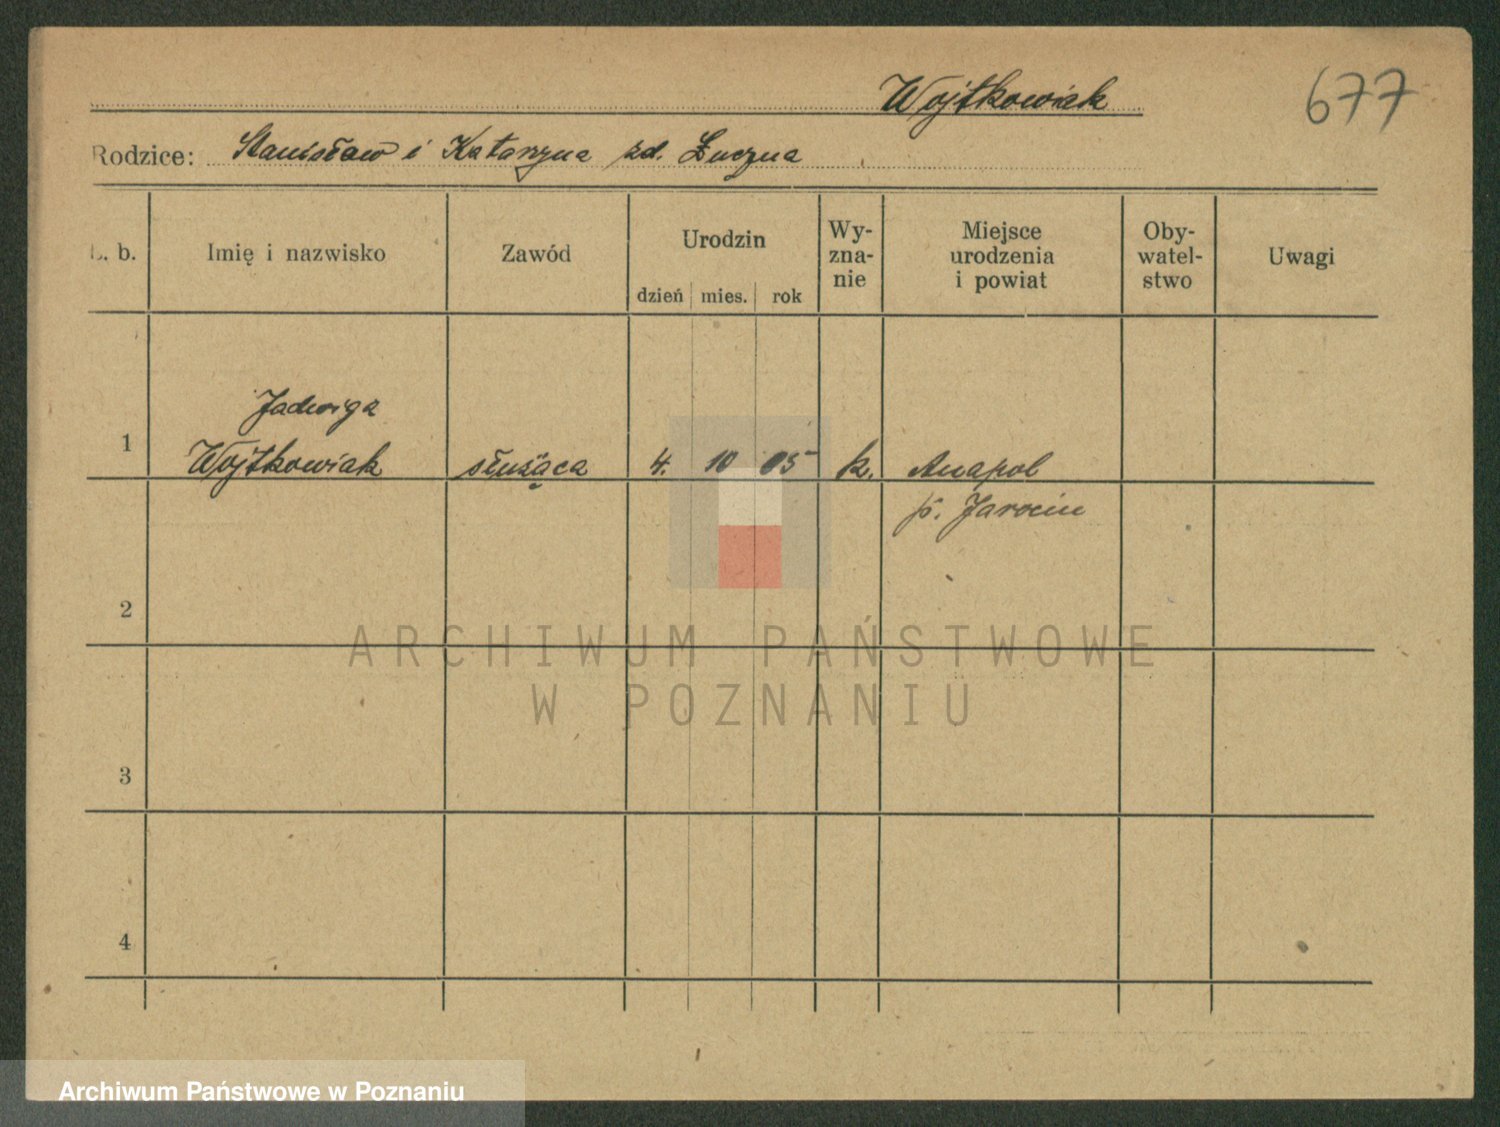 Wojtkowiak
677
Rodzice: Stanisław i Katarzyna zd. Łuczna
L. b.
Imię i nazwisko
Zawód
Urodzin
dzień mies. rok
Wy-
zna-
nie
Miejsce
urodzenia
i powiat
Oby-
watel-
stwo
Uwagi
1
Jadwiga
Wojtkowiak
służąca
4. 10 05
k.
Anapol
p. Jarocin
2
3
4
ARCHIWUM PAŃSTWOWE
W POZNANIU
Archiwum Państwowe w Poznaniu